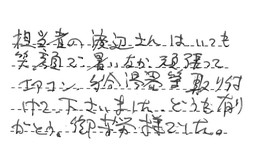 担当者の渡辺さんはいつも
笑顔で暑いなか頑張って
エアコン、給湯器等取り付
けて下さいました。どうも有り
がとう。御苦労様でした。